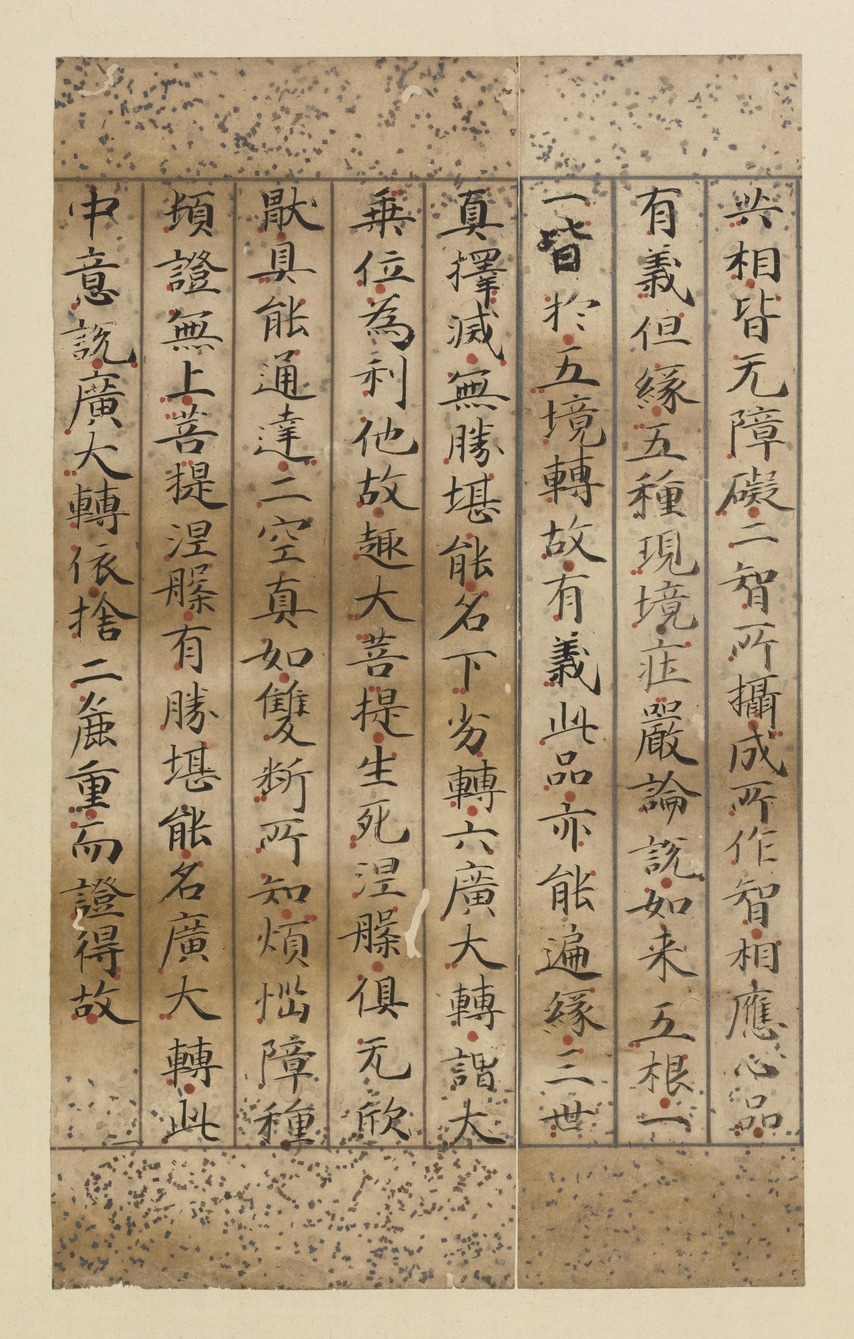 共相皆无障礙二智所攝成所作智相應心品
有義但緣五種現境庄嚴論說如来五根一
一皆於五境轉故有義此品亦能遍緣三世
真擇滅無勝堪能名下劣轉六廣大轉謂大
乗位為利他故趣大菩提生死涅槃俱无欣
猒具能通達二空真如雙断所知煩惱障種
頓證無上菩提涅槃有勝堪能名廣大轉此
中意說廣大轉依捨二麁重而證得故